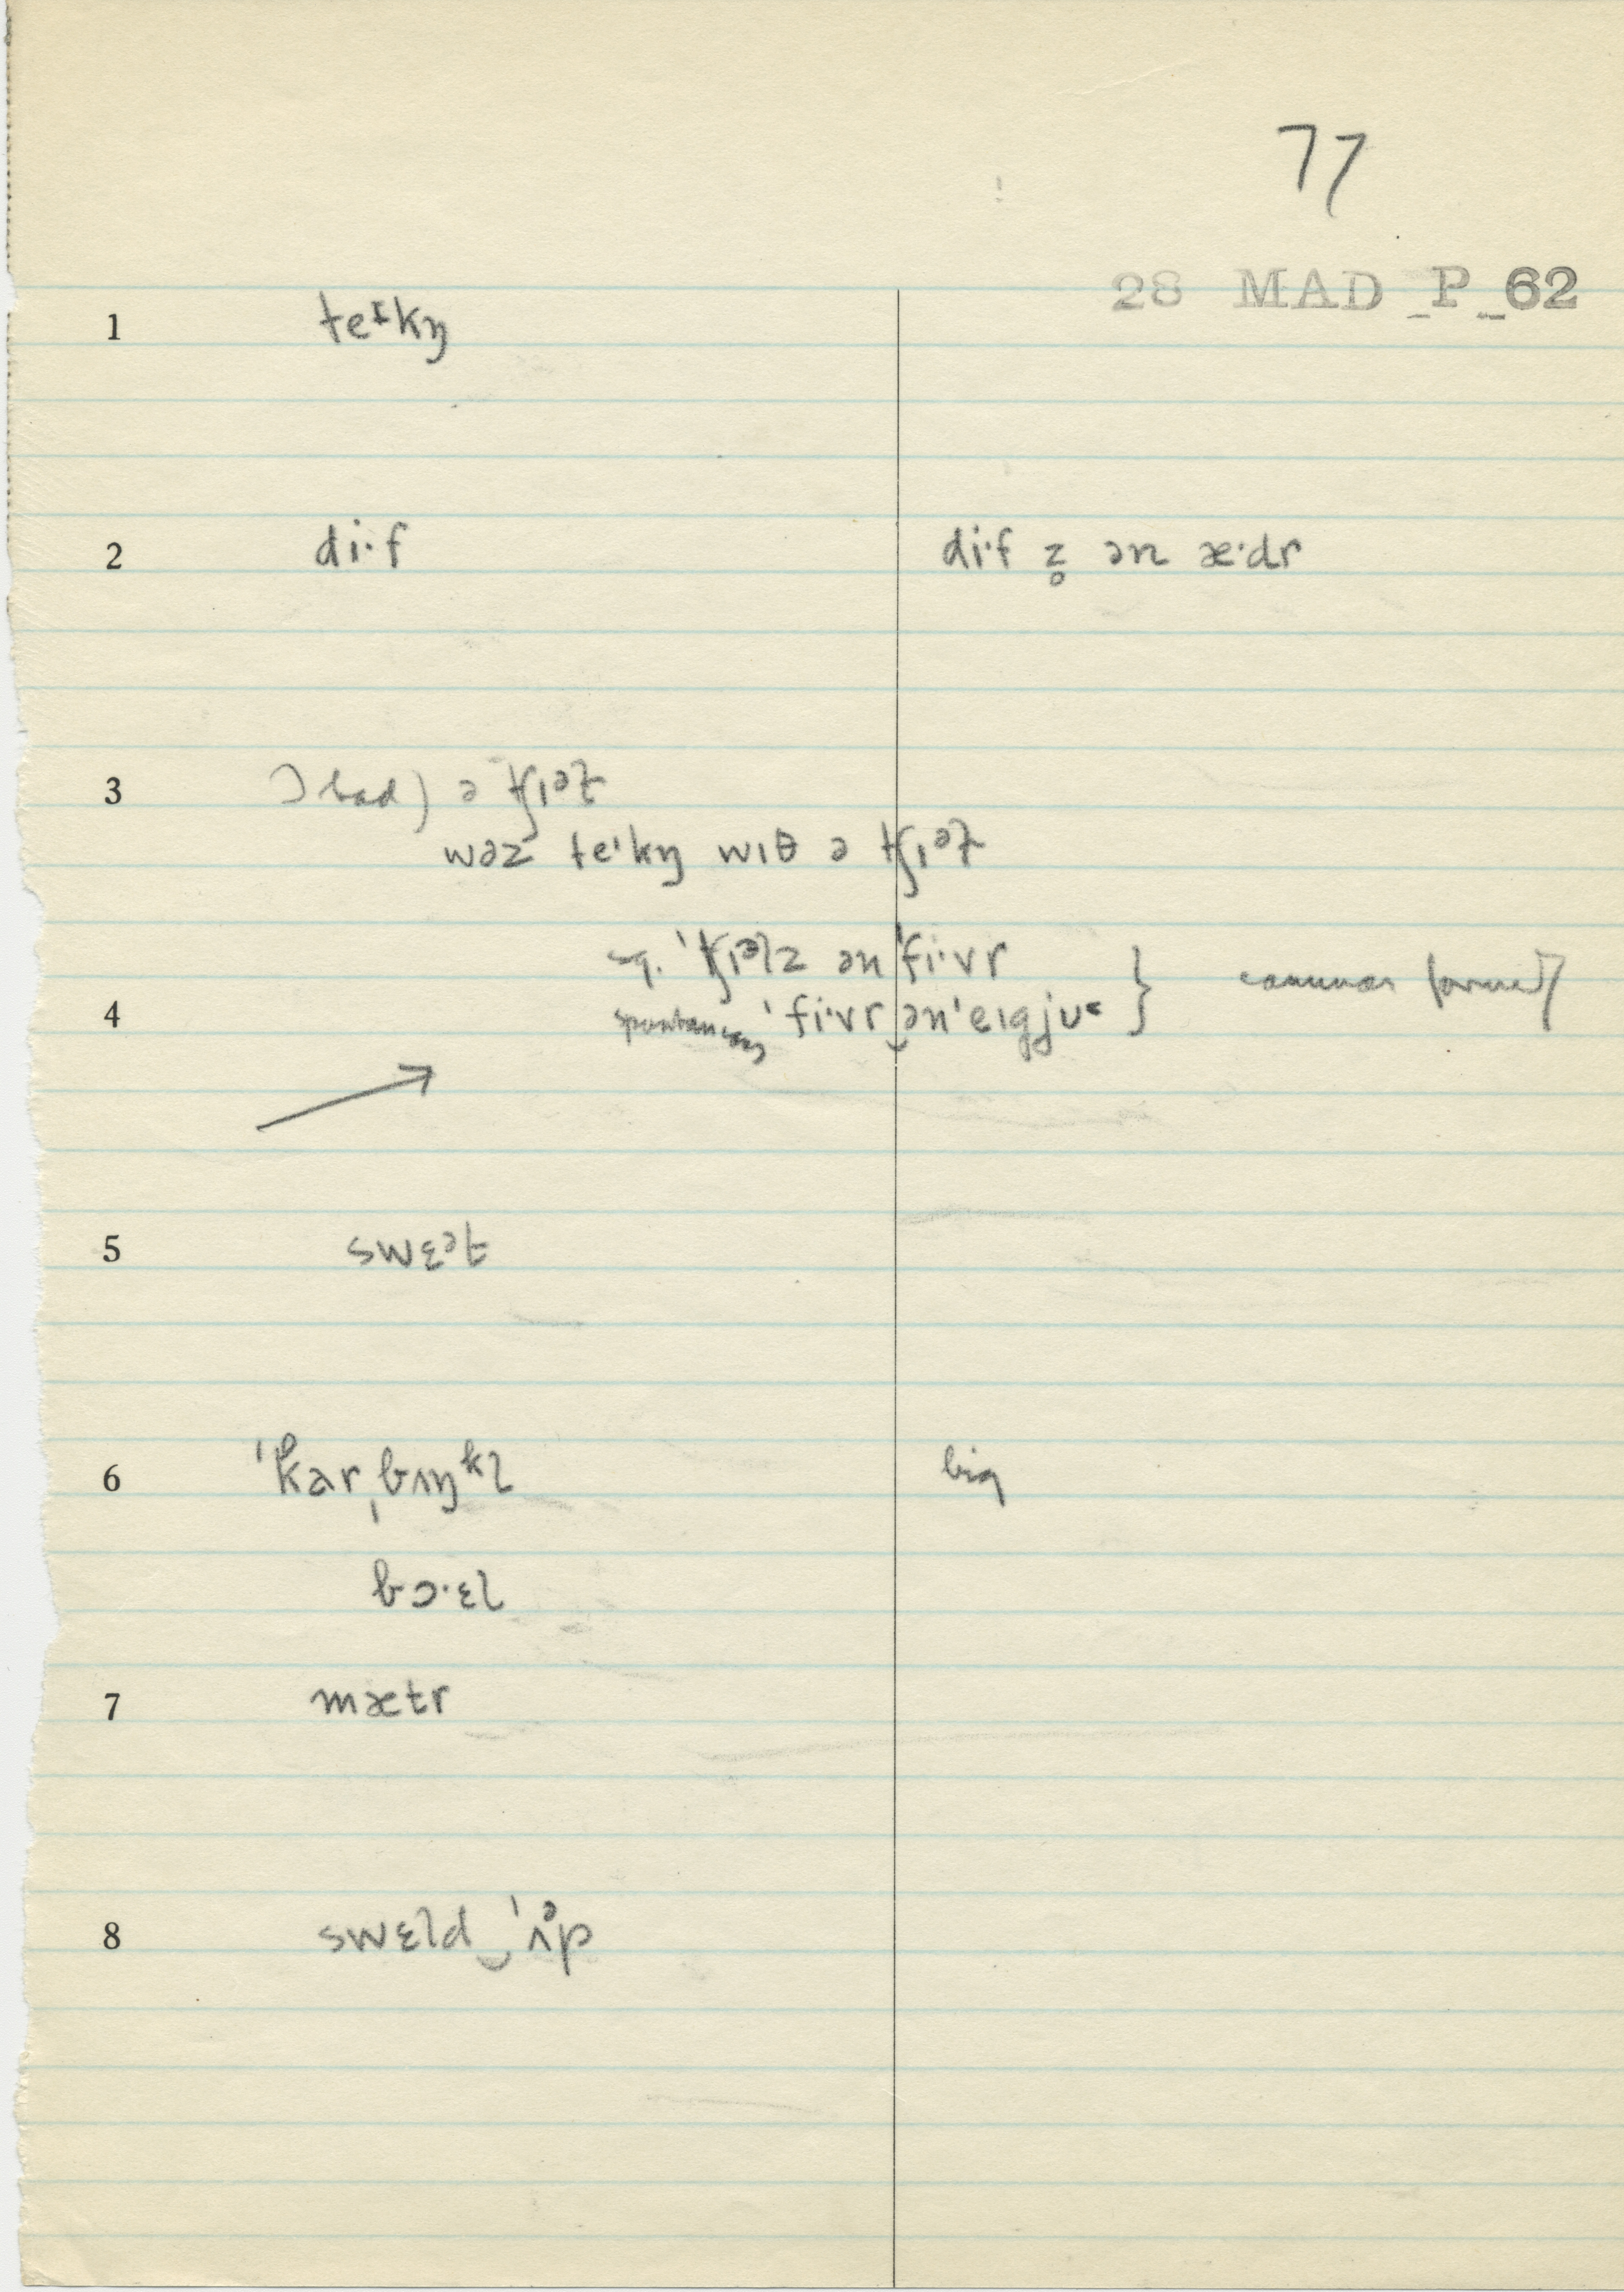 77
28 MAD P 62
1 teᶦkŋ
2 di·f di·f z̥ ən æ·dr
3 Ɔ had) ə ʧɪᵊl
wəz te'kŋ wɪθ ə ʧɪᵊl
sq. 'ʧɪᵊlz ən 'fi·vr
4 spontaneous 'fi·vr‿ən 'eɪgju˂ } common formerly
5 swɛᵊt
6 'kar,bʌŋᵏl big
bɔ·ɛl
7 mætr
8 swɛld‿'ʌᵊp